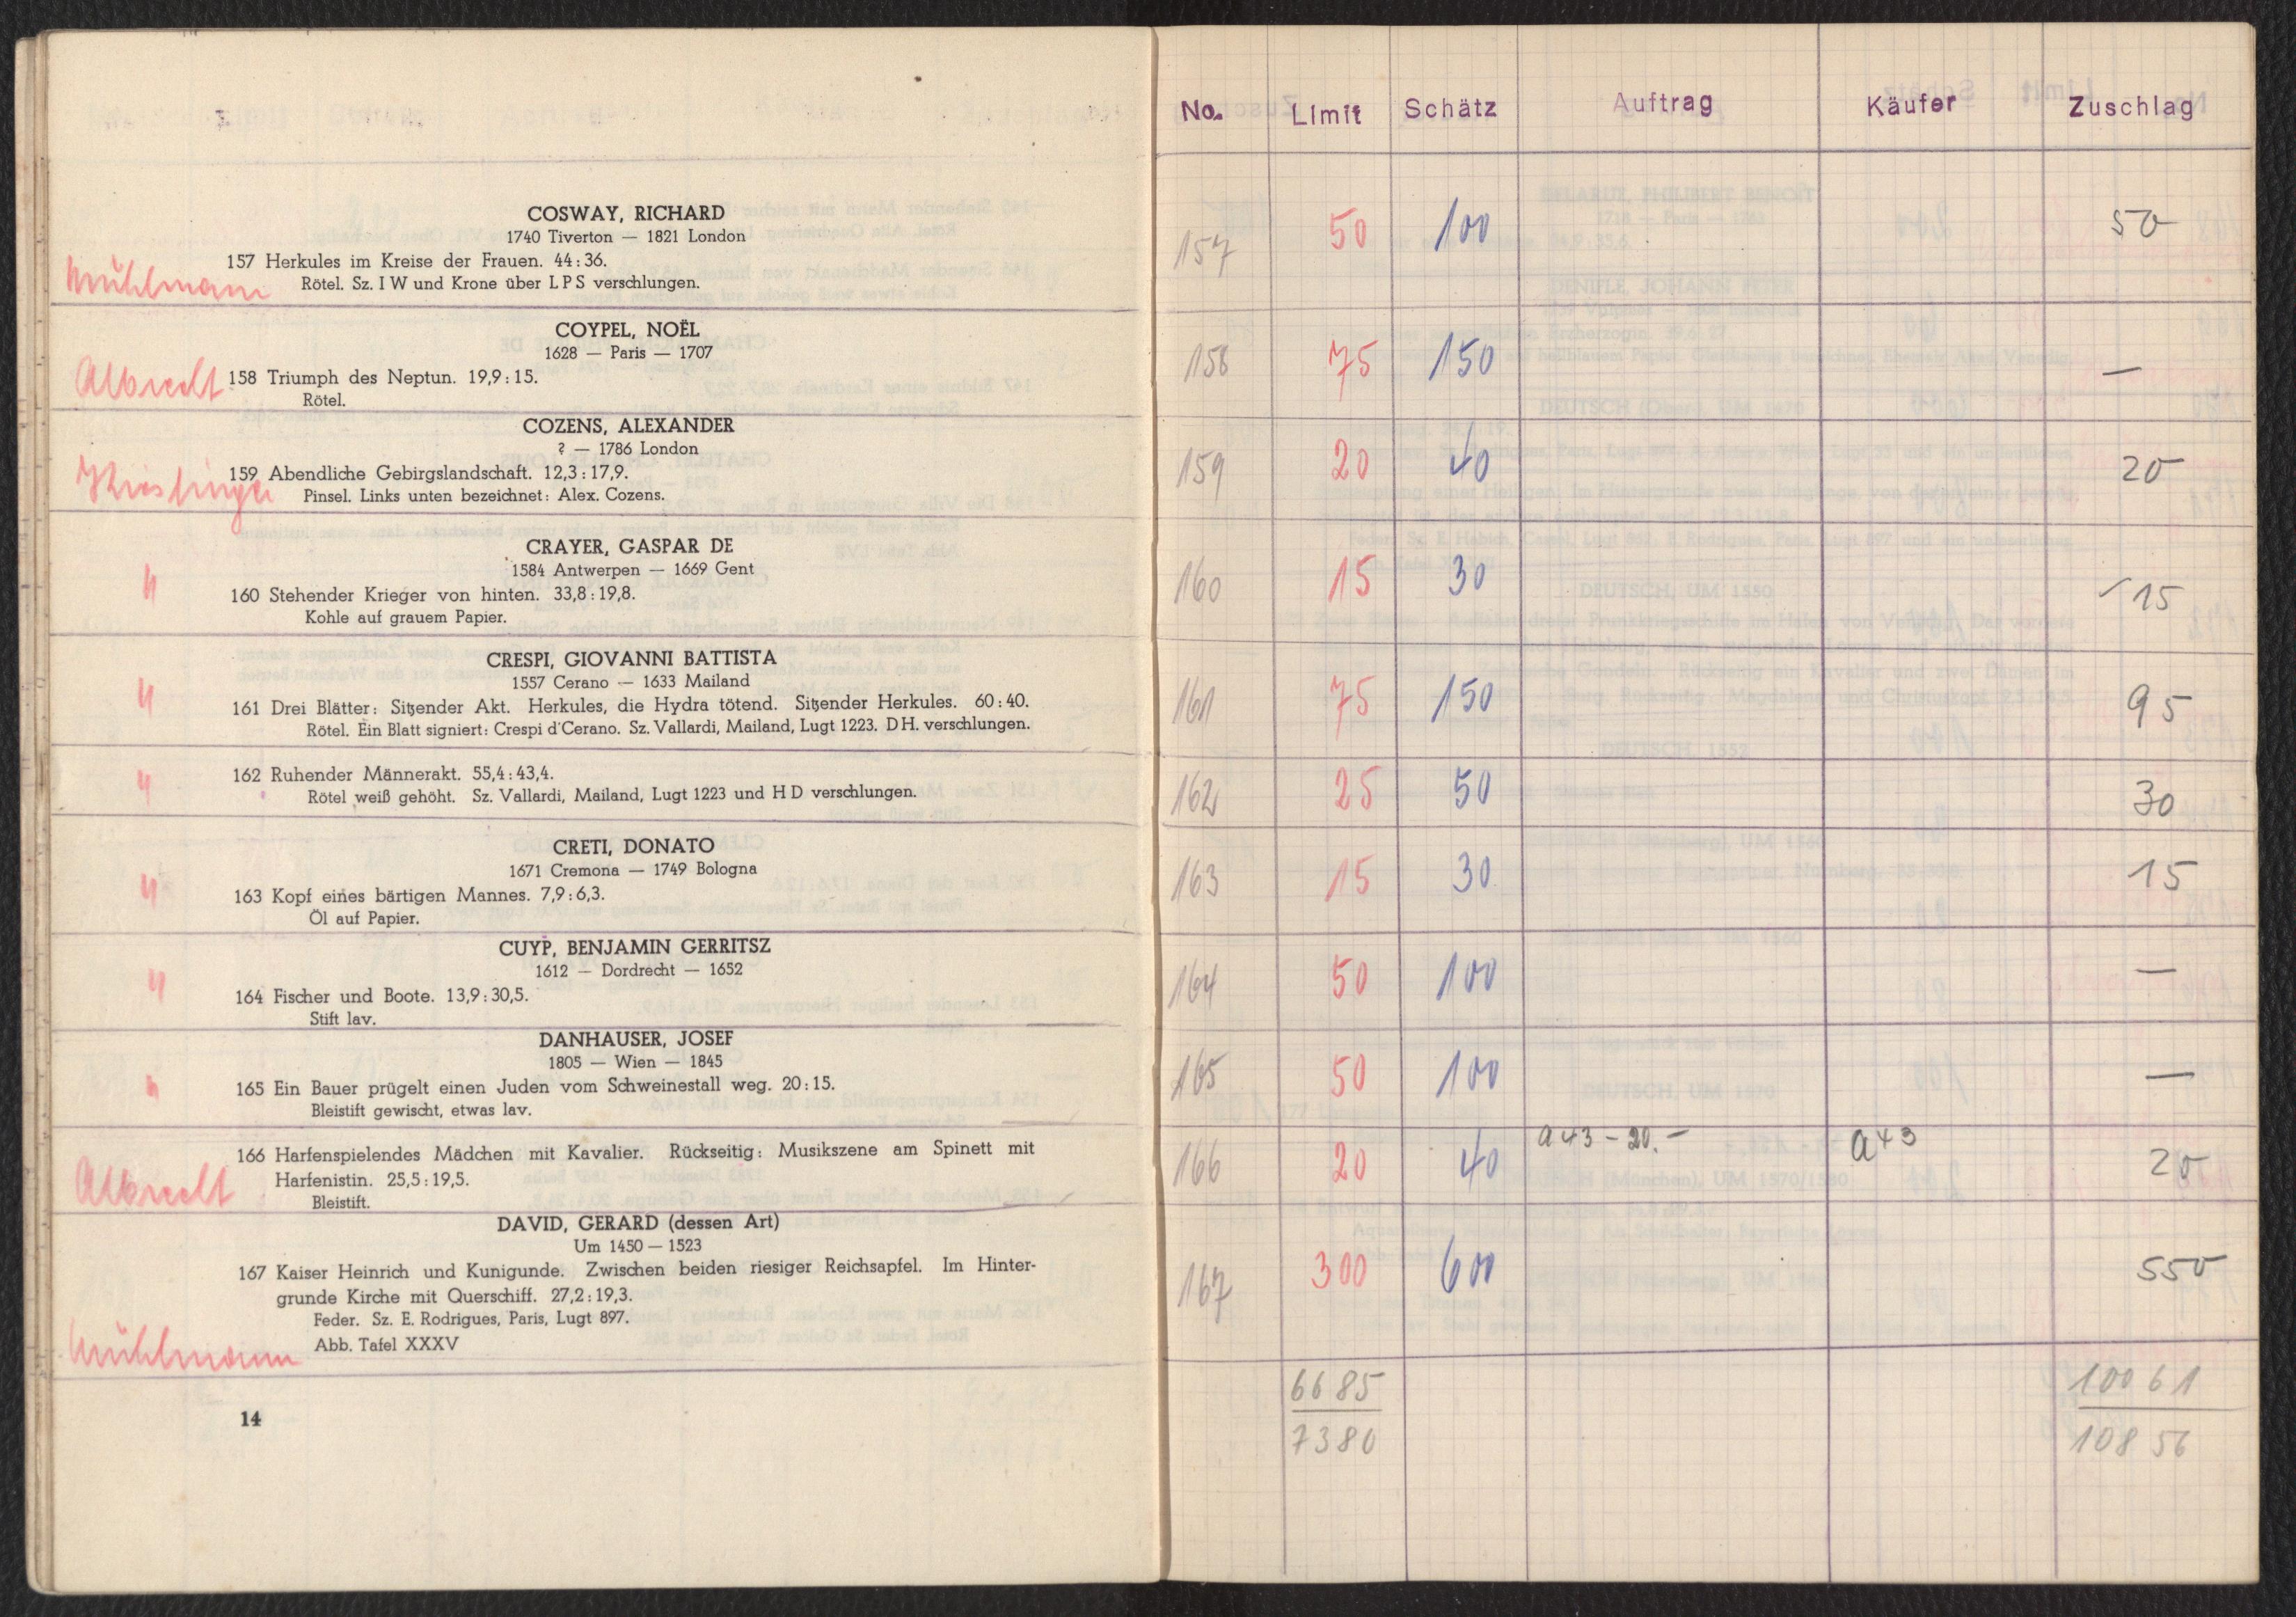 COSWAY, RICHARD
1740 Tiverton — 1821 London
157 Herkules im Kreise der Frauen. 44:36.
Mühlmann
Rötel. Sz. I W und Krone über L P S verschlungen.
COYPEL, NOËL
1628 — Paris — 1707
Albrecht
158 Triumph des Neptun. 19,9:15.
Rötel.
COZENS, ALEXANDER
? — 1786 London
159 Abendliche Gebirgslandschaft. 12,3:17,9.
Pinsel. Links unten bezeichnet: Alex. Cozens.
CRAYER, GASPAR DE
1584 Antwerpen — 1669 Gent
"
160 Stehender Krieger von hinten. 33,8:19,8.
Kohle auf grauem Papier.
CRESPI, GIOVANNI BATTISTA
1557 Cerano — 1633 Mailand
"
161 Drei Blätter: Sitzender Akt. Herkules, die Hydra tötend. Sitzender Herkules. 60:40.
Rötel. Ein Blatt signiert: Crespi d'Cerano. Sz. Vallardi, Mailand, Lugt 1223. D H. verschlungen.
"
162 Ruhender Männerakt. 55,4:43,4.
Rötel weiß gehöht. Sz. Vallardi, Mailand, Lugt 1223 und H D verschlungen.
CRETI, DONATO
1671 Cremona — 1749 Bologna
"
163 Kopf eines bärtigen Mannes. 7,9:6,3.
Öl auf Papier.
CUYP, BENJAMIN GERRITSZ
1612 — Dordrecht — 1652
"
164 Fischer und Boote. 13,9:30,5.
Stift lav.
DANHAUSER, JOSEF
1805 — Wien — 1845
"
165 Ein Bauer prügelt einen Juden vom Schweinestall weg. 20:15.
Bleistift gewischt, etwas lav.
166 Harfenspielendes Mädchen mit Kavalier. Rückseitig: Musikszene am Spinett mit
Albrecht
Harfenistin. 25,5:19,5.
Bleistift.
DAVID, GERARD (dessen Art)
Um 1450 — 1523
167 Kaiser Heinrich und Kunigunde. Zwischen beiden riesiger Reichsapfel. Im Hinter-
grunde Kirche mit Querschiff. 27,2:19,3.
Feder. Sz. E. Rodrigues, Paris, Lugt 897.
Mühlmann
Abb. Tafel XXXV
14
No. Limit Schätz Auftrag Käufer Zuschlag
157 50 100 50
158 75 150 —
159 20 40 20
160 15 30 15
161 75 150 95
162 25 50 30
163 15 30 15
164 50 100 —
165 50 100 —
166 20 40 a43 - 20.- a43 20
167 300 600 550
6685 10061
7380 10856